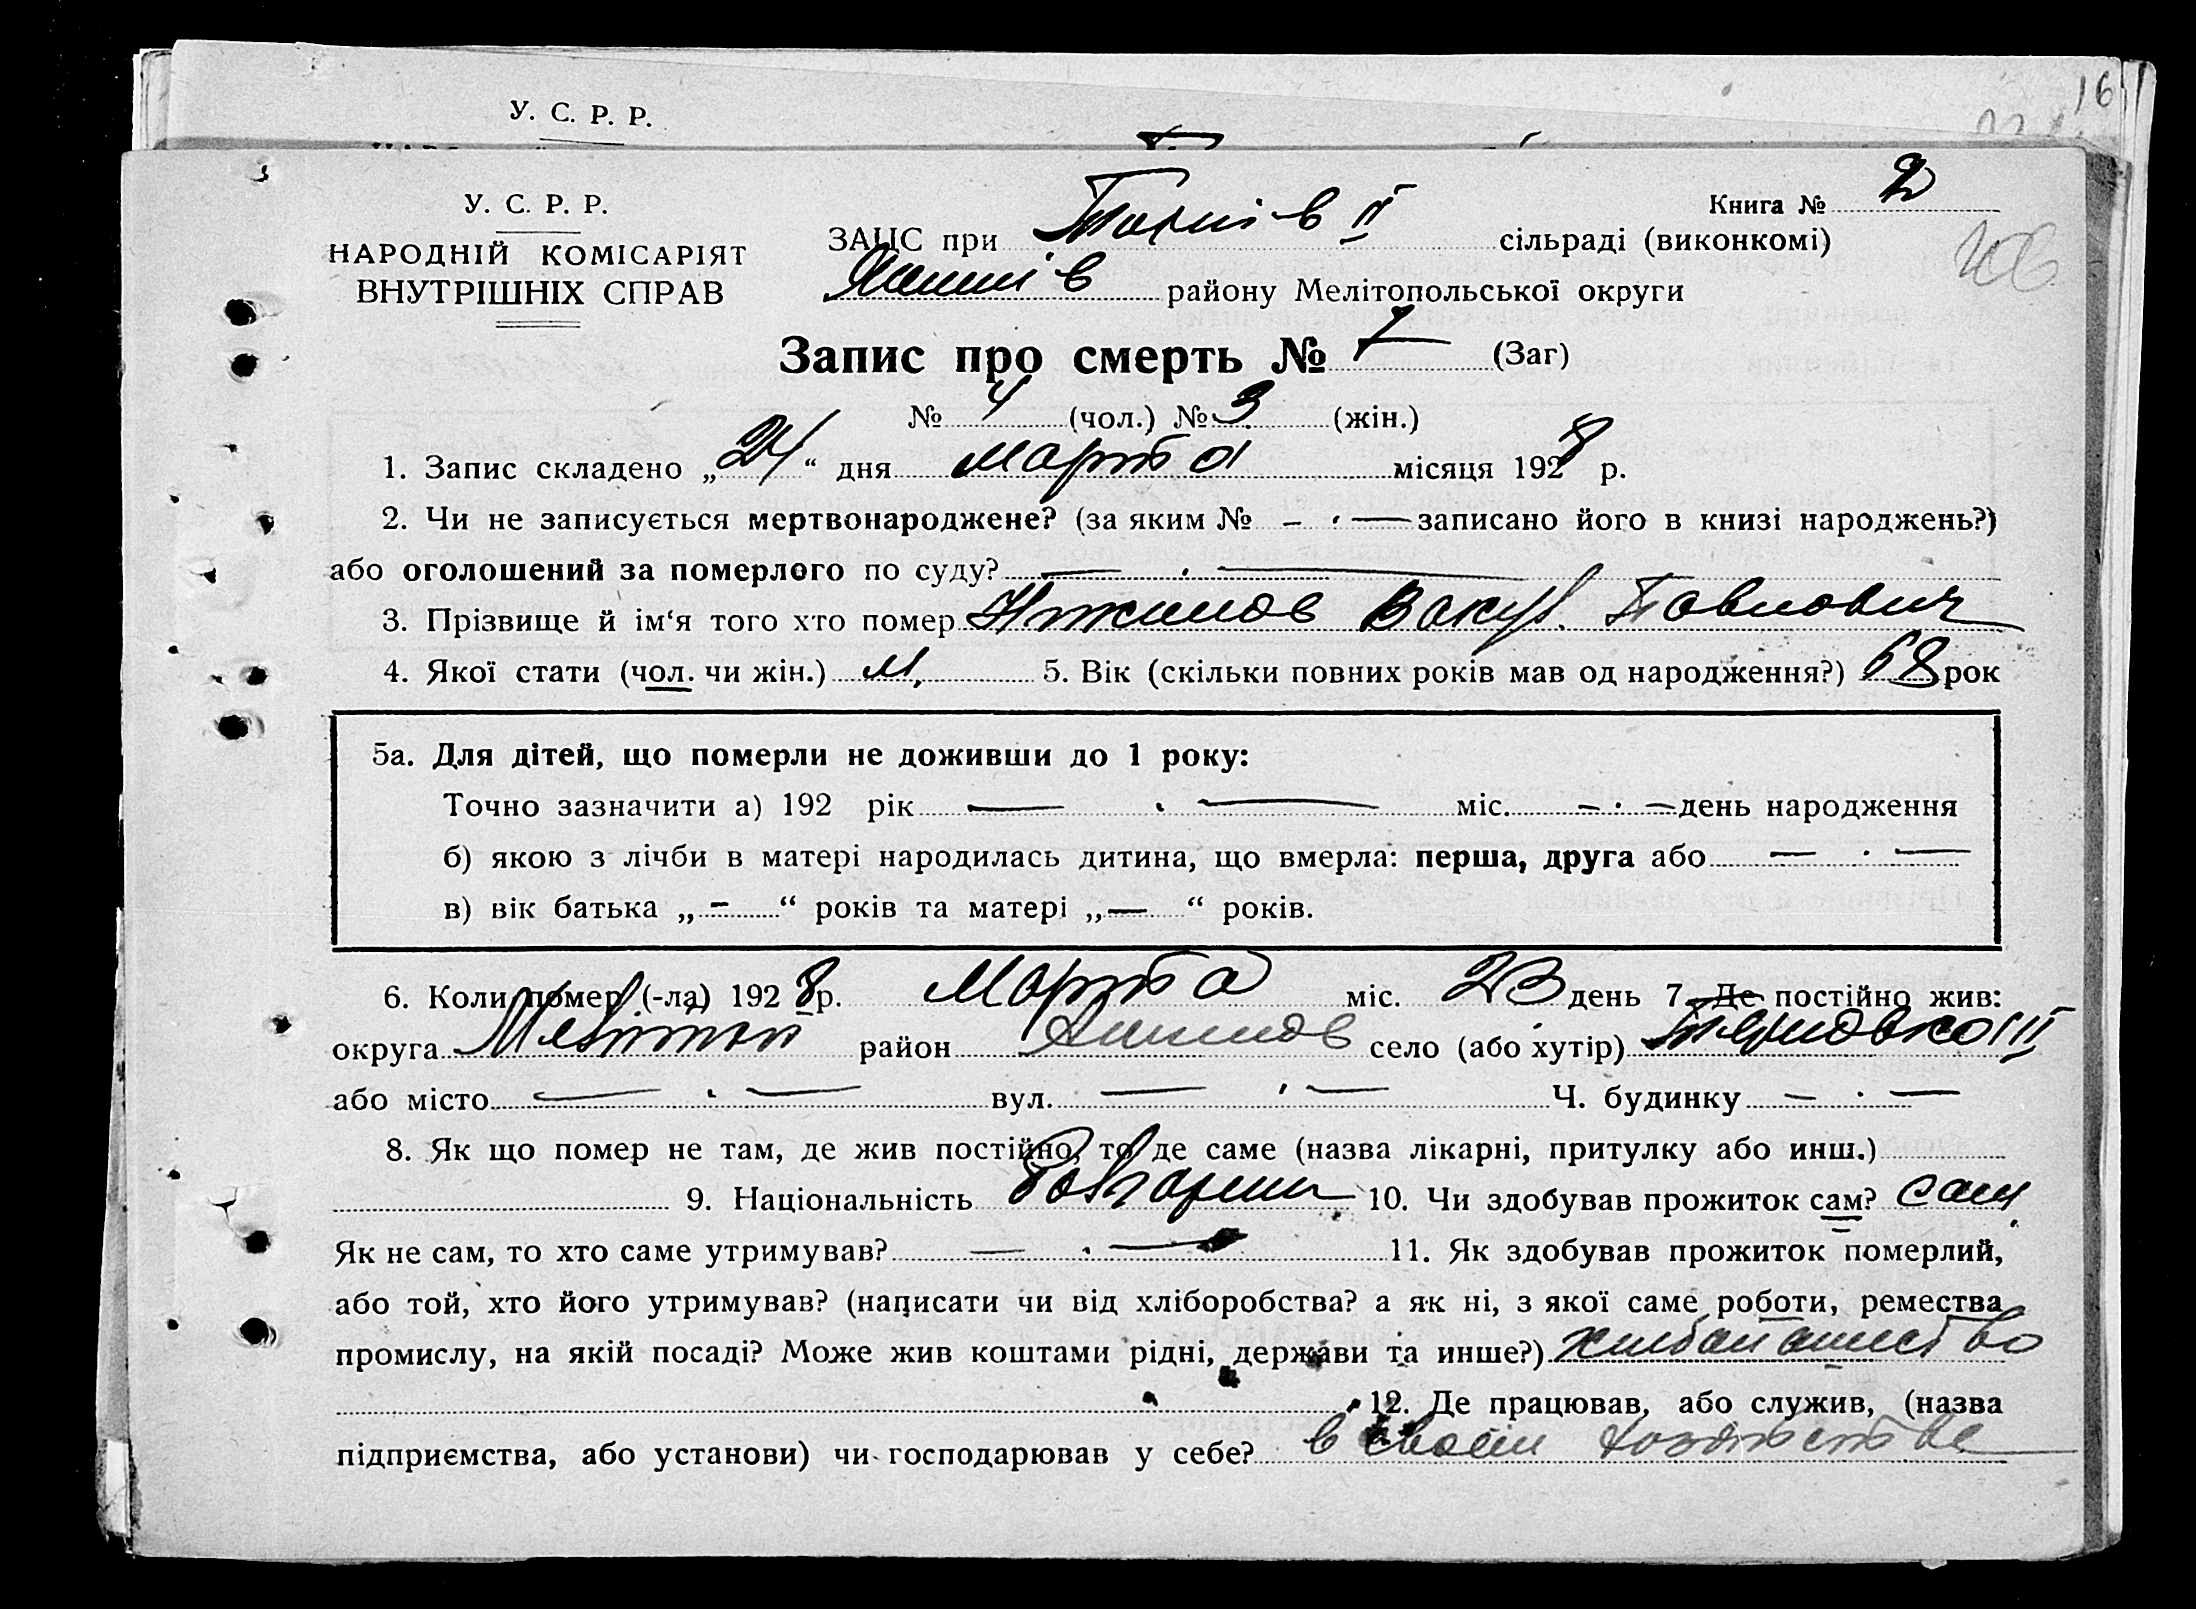 16
У. С. Р. Р.
У. С. Р. Р.
Книга № 2
НАРОДНІЙ КОМІСАРІЯТ
ВНУТРІШНІХ СПРАВ
ЗАЦС при II сільраді (виконкомі)
району Мелітопольської округи
Запис про смерть № 7 (Заг)
№ 4 (чол.) № 3 (жін.)
1. Запис складено „24“ дня марта місяця 1928 р.
2. Чи не записується мертвонароджене? (за яким № – · — записано його в книзі народжень?)
або оголошений за померлого по суду? — · —
3. Прізвище й ім‘я того хто помер Вакул. Павлович
4. Якої стати (чол. чи жін.) м. 5. Вік (скільки повних років мав од народження?) 68 рок
5а. Для дітей, що померли не доживши до 1 року:
Точно зазначити а) 192 рік — · — міс. – · – день народження
б) якою з лічби в матері народилась дитина, що вмерла: перша, друга або — · —
в) вік батька „ – “ років та матері „ — “ років.
6. Коли помер (-ла) 1928 р. Марта міс. 23 день 7. Де постійно жив:
округа район село (або хутір)
або місто — · — вул. — · — Ч. будинку — · —
8. Як що помер не там, де жив постійно, то де саме (назва лікарні, притулку або инш.)
9. Національність 10. Чи здобував прожиток сам? сам
Як не сам, то хто саме утримував? — · — 11. Як здобував прожиток померлий,
або той, хто його утримував? (написати чи від хліборобства? а як ні, з якої саме роботи, ремества
промислу, на якій посаді? Може жив коштами рідні, держави та инше?) хлебопашество
12. Де працював, або служив, (назва
підприємства, або установи) чи господарював у себе? в своем хозяйстве